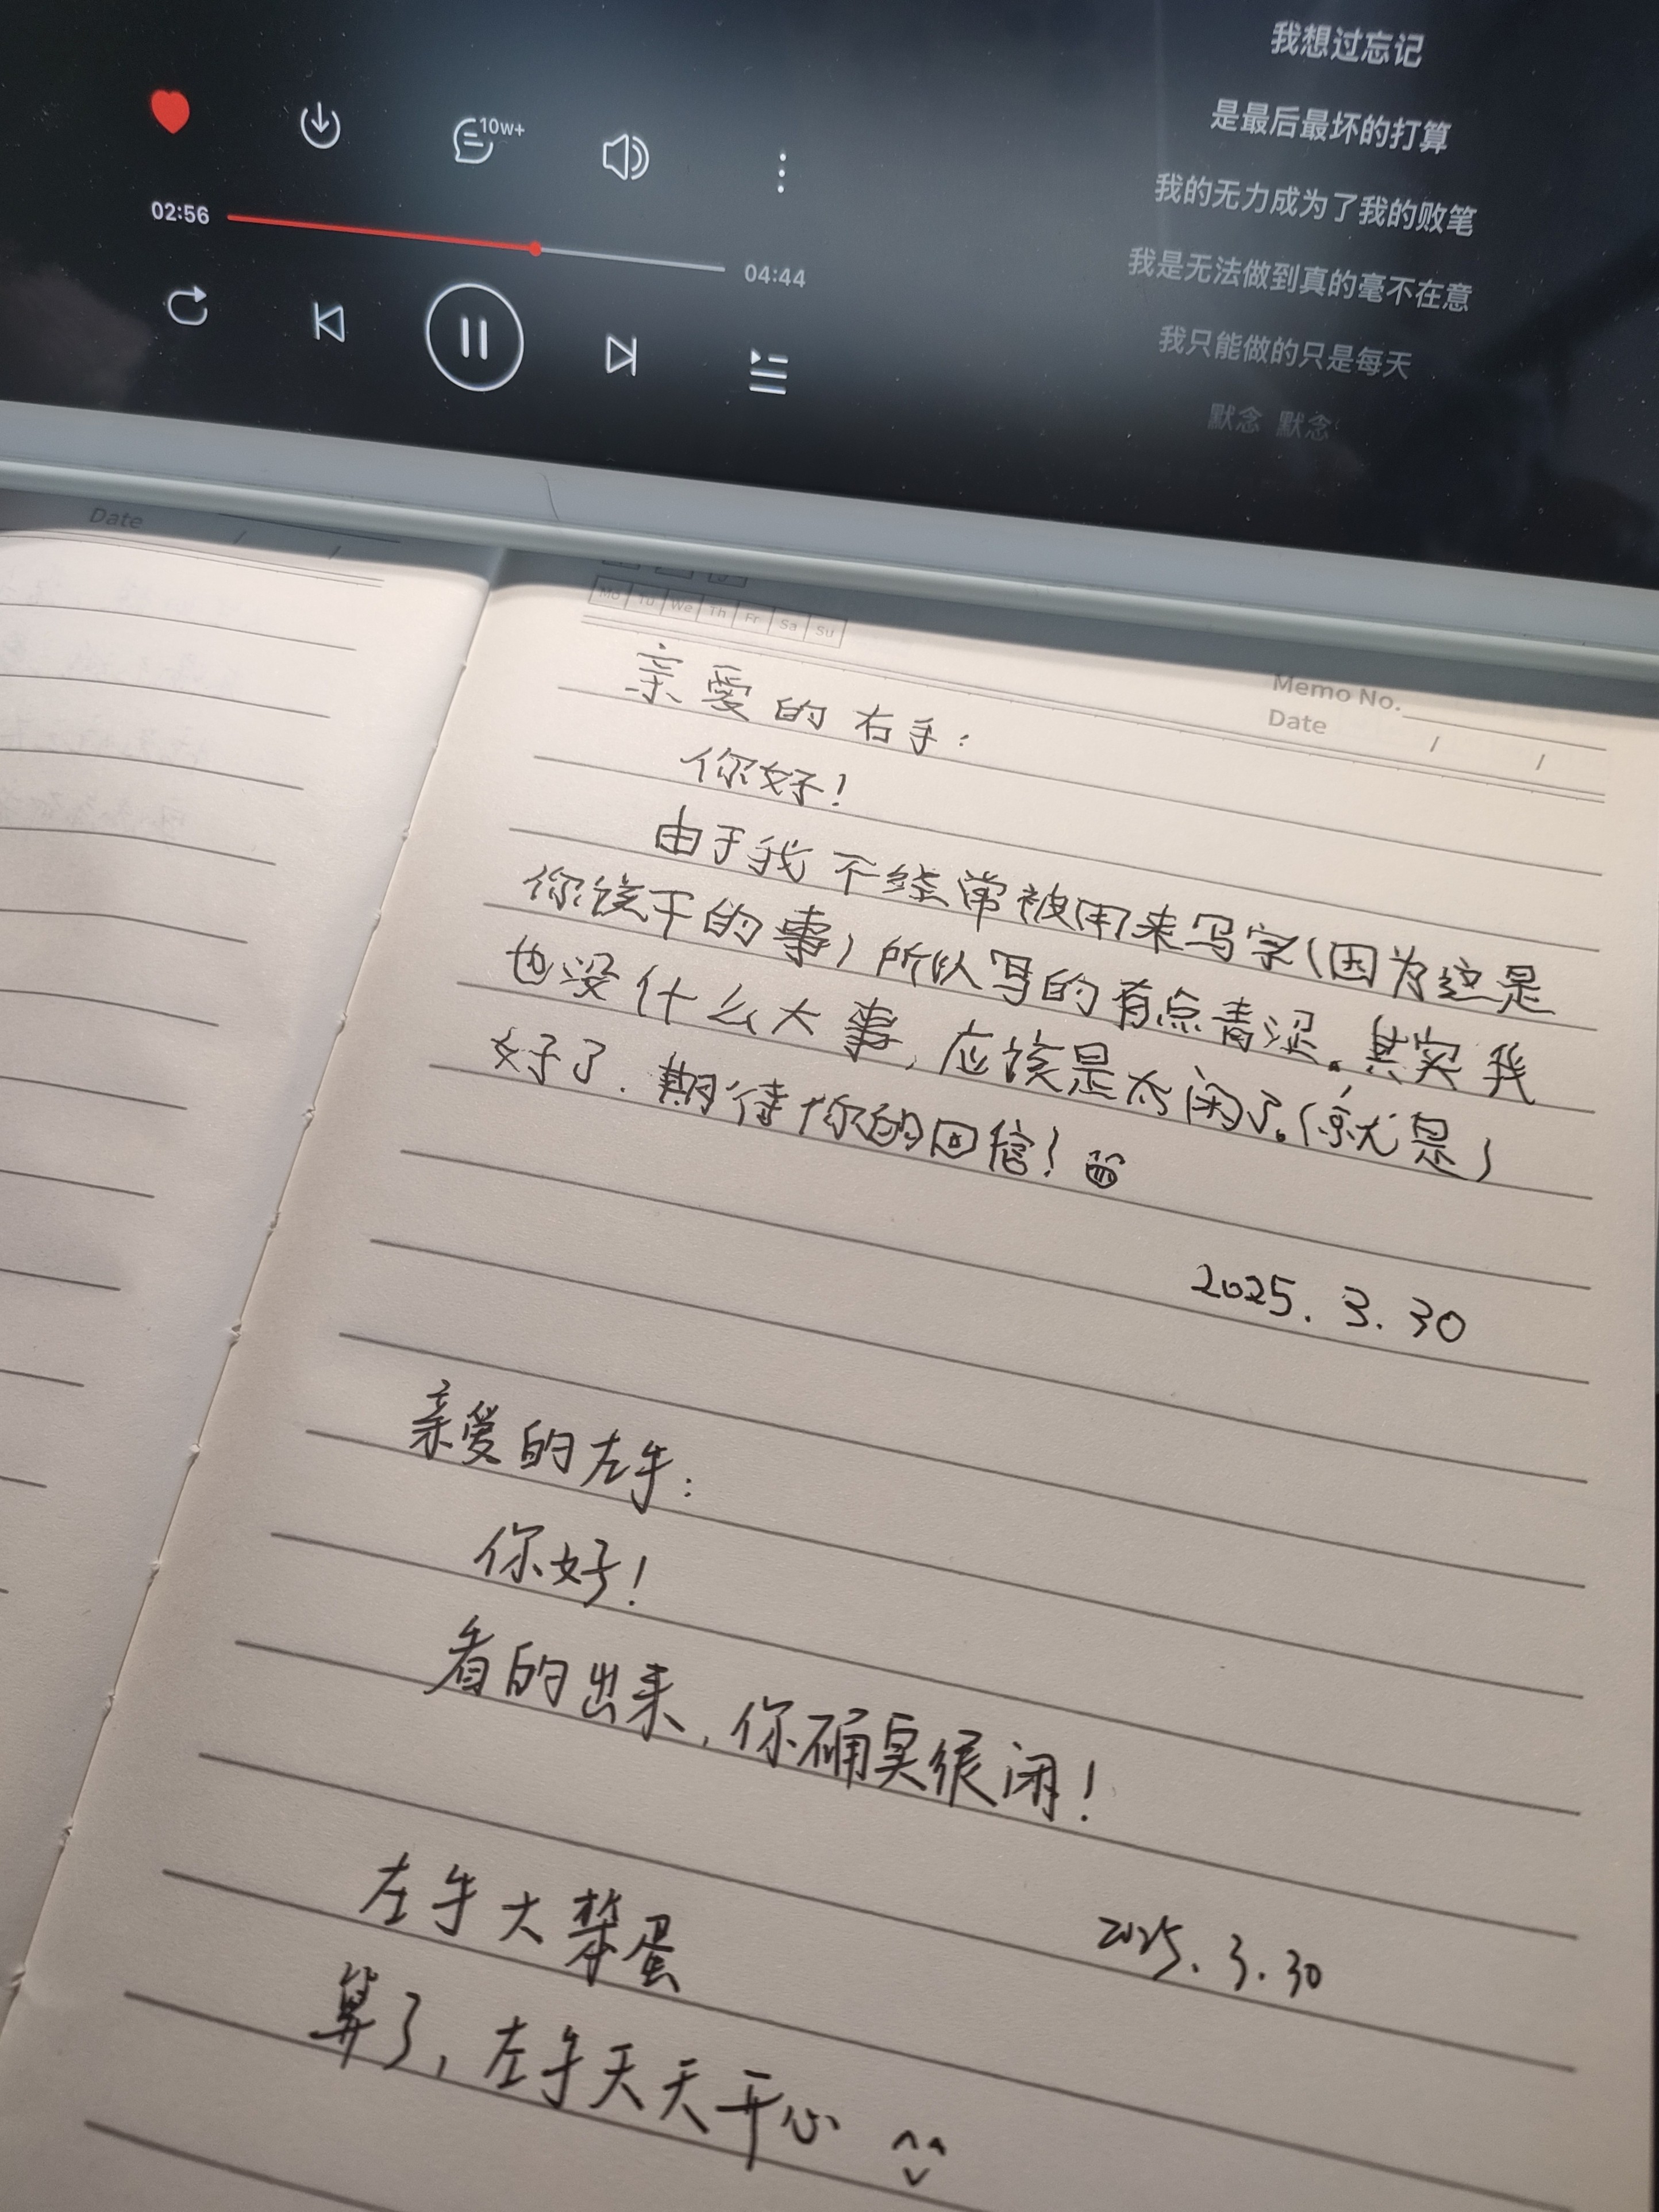 我想过忘记
是最后最坏的打算
我的无力成为了我的败笔
我是无法做到真的毫不在意
我只能做的只是每天
默念 默念
10w+
02:56
04:44
Date / /
Mo Tu We Th Fr Sa Su
Memo No.
Date / /
亲爱的右手:
你好!
由于我不经常被用来写字(因为这是
你该干的事)所以写的有点青涩。其实我
也没什么大事,应该是太闲了。(就是)
好了.期待你的回信!
2025.3.30
亲爱的左手:
你好!
看的出来,你确实很闲!
2025.3.30
左手大笨蛋
算了,左手天天开心 ^^